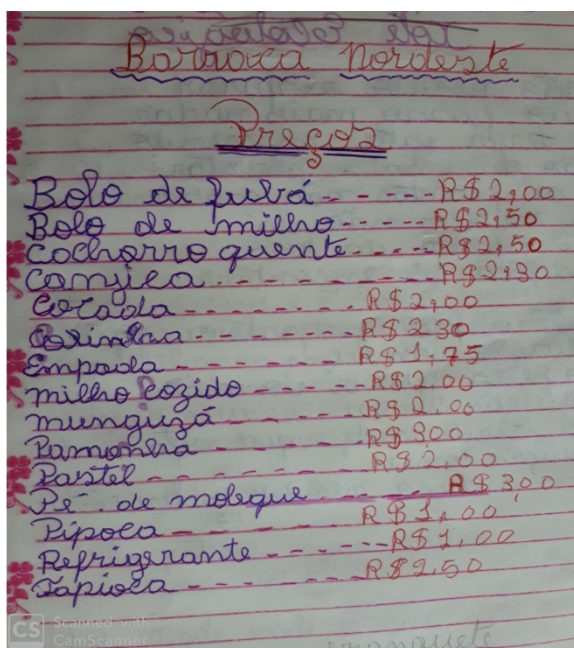 Barraca Nordeste
Preços
Bolo de fubá - - - - - R$2,00
Bolo de milho - - - - - R$2,50
Cachorro quente - - - - - R$2,50
Canjica - - - - - - - - - R$2,30
Cocada - - - - - - - - R$2,00
Coxinha - - - - - - - - R$2,30
Empada - - - - - - - - R$1,75
milho cozido - - - - - - R$2,00
munguzá - - - - - - - R$2,00
Pamonha - - - - - - - R$300
Pastel - - - - - - - - - R$2,00
Pé de moleque - - - - - R$3,00
Pipoca - - - - - - - - R$1,00
Refrigerante - - - - - - R$1,00
Tapioca - - - - - - - - R$2,50
CS Scanned with
CamScanner